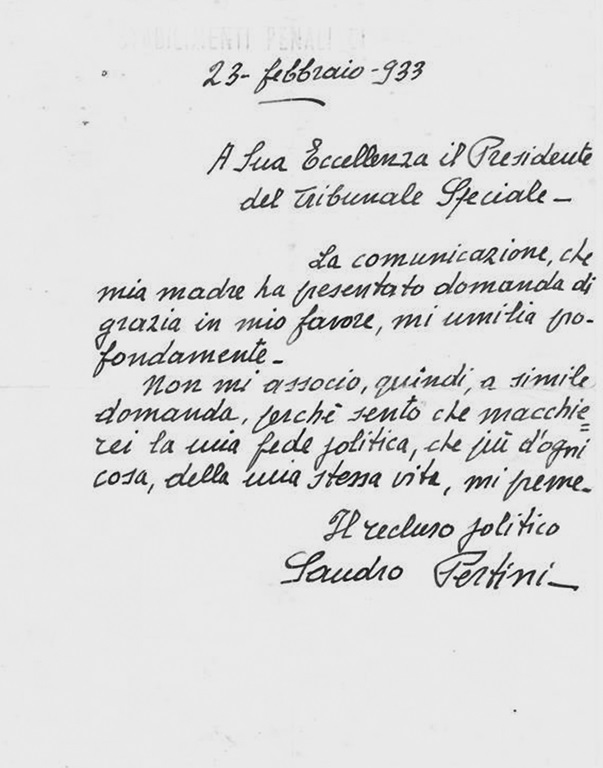 23- febbraio -933
A Sua Eccellenza il Presidente
del Tribunale Speciale -
La comunicazione, che
mia madre ha presentato domanda di
grazia in mio favore, mi umilia pro-
fondamente -
Non mi associo, quindi, a simile
domanda, perchè sento che macchie=
rei la mia fede politica, che più d'ogni
cosa, della mia stessa vita, mi preme -
Il recluso politico
Sandro Pertini -